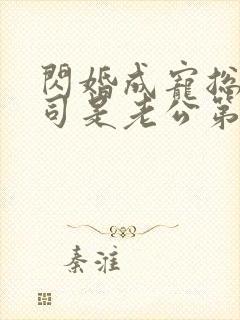 閃婚成寵總
司是老公第
秦淮